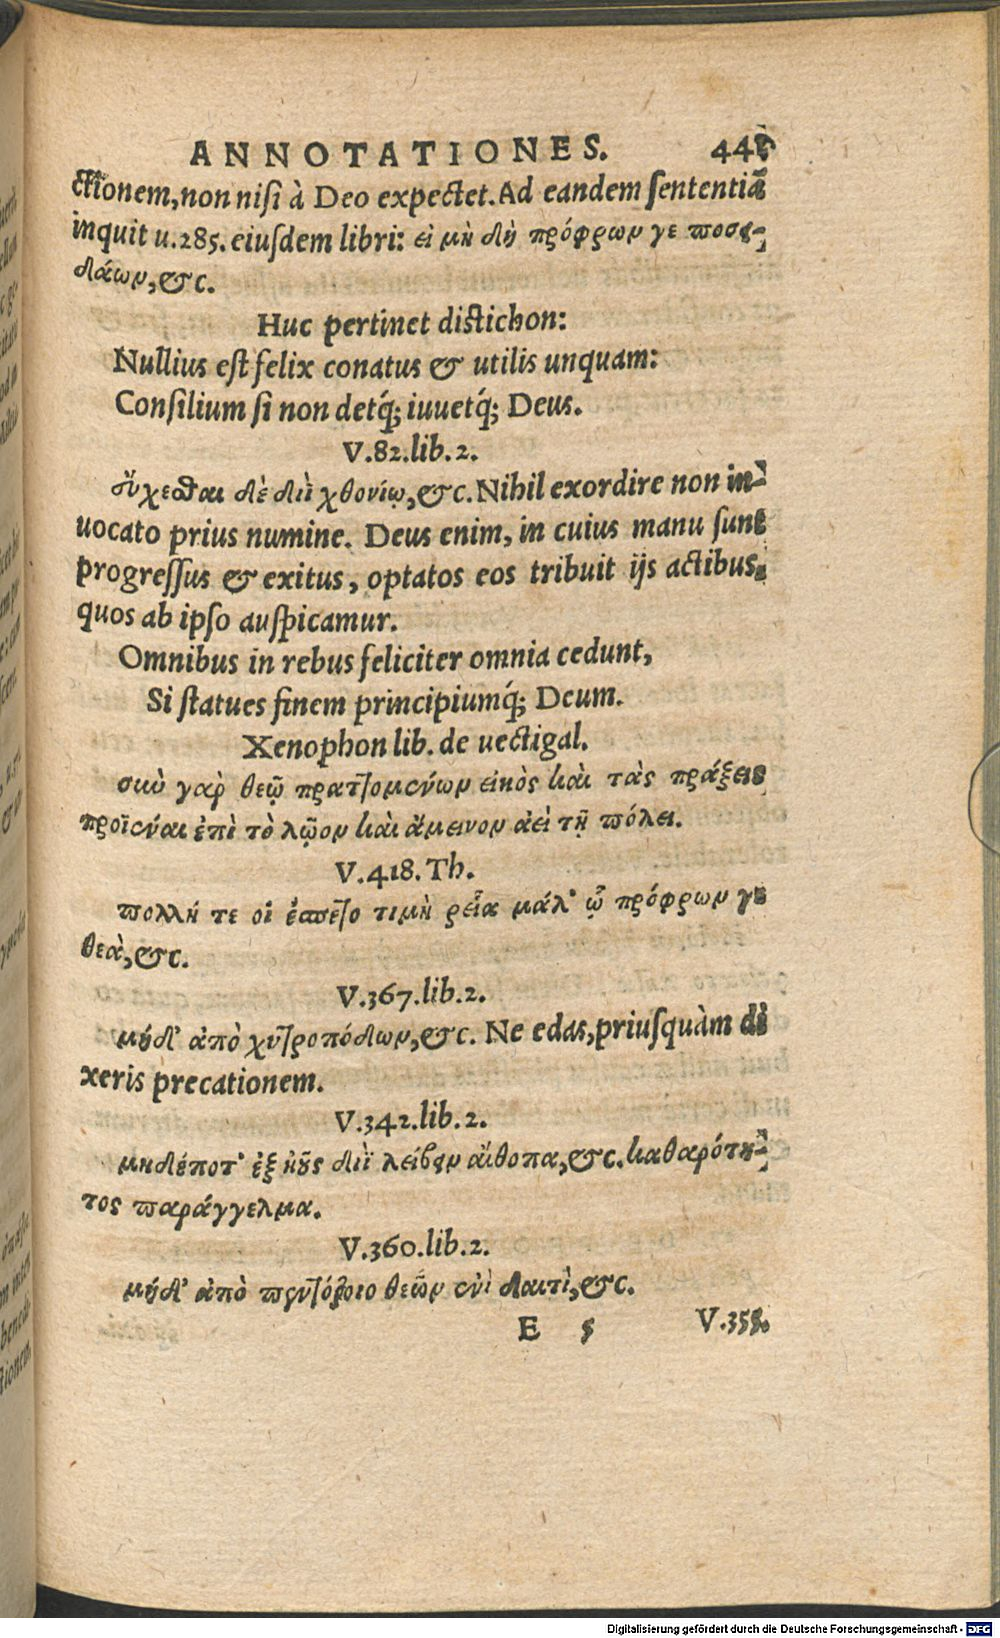 ANNOTATIONES.
ctionem, non nisi à Deo expectet. Ad eandem sententiã
inquit u.285. eiusdem libri: εἰ μὴ δὴ πρόφρων γε ποσει-
δάων, &c.
Huc pertinet distichon:
Nullius est felix conatus & utilis unquam:
Consilium si non detq́; iuuetq́; Deus.
V.82.lib.2.
εὔχεσθαι δὲ Διῒ χθονίῳ, &c. Nihil exordire non in-
uocato prius numine. Deus enim, in cuius manu sunt
progressus & exitus, optatos eos tribuit ijs actibus,
quos ab ipso auspicamur.
Omnibus in rebus feliciter omnia cedunt,
Si statues finem principiumq́; Deum.
Xenophon lib. de uectigal.
σὺν γὰρ θεῷ πραττομένων εἰκὸς καὶ τὰς πράξεις
προϊέναι ἐπὶ τὸ λῷον καὶ ἄμεινον ἀεὶ τῇ πόλει.
V.418.Th.
πολλή τε οἱ ἕσπετο τιμὴ ῥεῖα μάλ' ᾧ πρόφρων γε
θεὰ, &c.
V.367.lib.2.
μήδ' ἀπὸ χυτροπόδων, &c. Ne edas, priusquàm di
xeris precationem.
V.342.lib.2.
μηδέποτ' ἐξ ἠοῦς Διῒ λείβειν αἴθοπα, &c. καθαρότη-
τος παράγγελμα.
V.360.lib.2.
μήδ' ἀπὸ πεντόζοιο θεῶν ἐνὶ δαιτὶ, &c.
E 5 V.358.
Digitalisierung gefördert durch die Deutsche Forschungsgemeinschaft - DFG